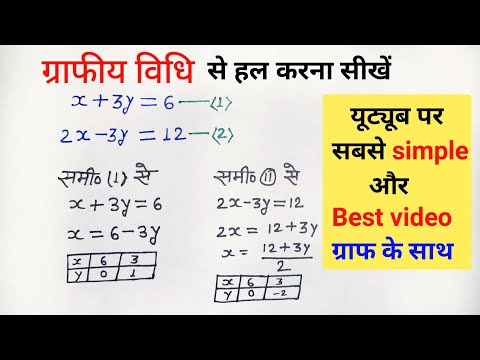 ग्राफीय विधि से हल करना सीखें
x + 3y = 6 —(1)
2x - 3y = 12 —(2)
समी० (1) से
x + 3y = 6
x = 6 - 3y
x 6 3
y 0 1
समी० (11) से
2x - 3y = 12
2x = 12 + 3y
x = 12 + 3y / 2
x 6 3
y 0 -2
यूट्यूब पर
सबसे simple
और
Best video
ग्राफ के साथ